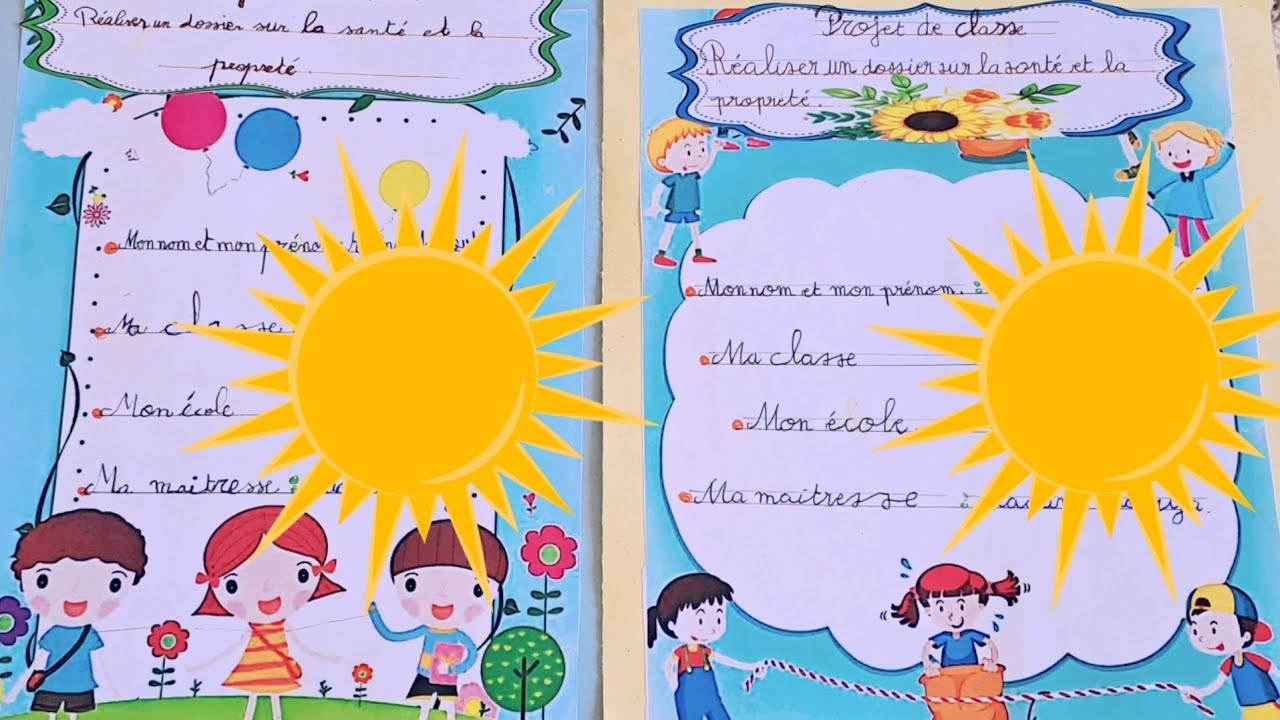 Réaliser un dossier sur la santé et la
propreté.
Mon nom et mon prénom
Ma classe
Mon école
Ma maitresse :
Projet de classe
Réaliser un dossier sur la santé et la
propreté.
Mon nom et mon prénom. :
Ma classe
Mon école.
Ma maitresse :